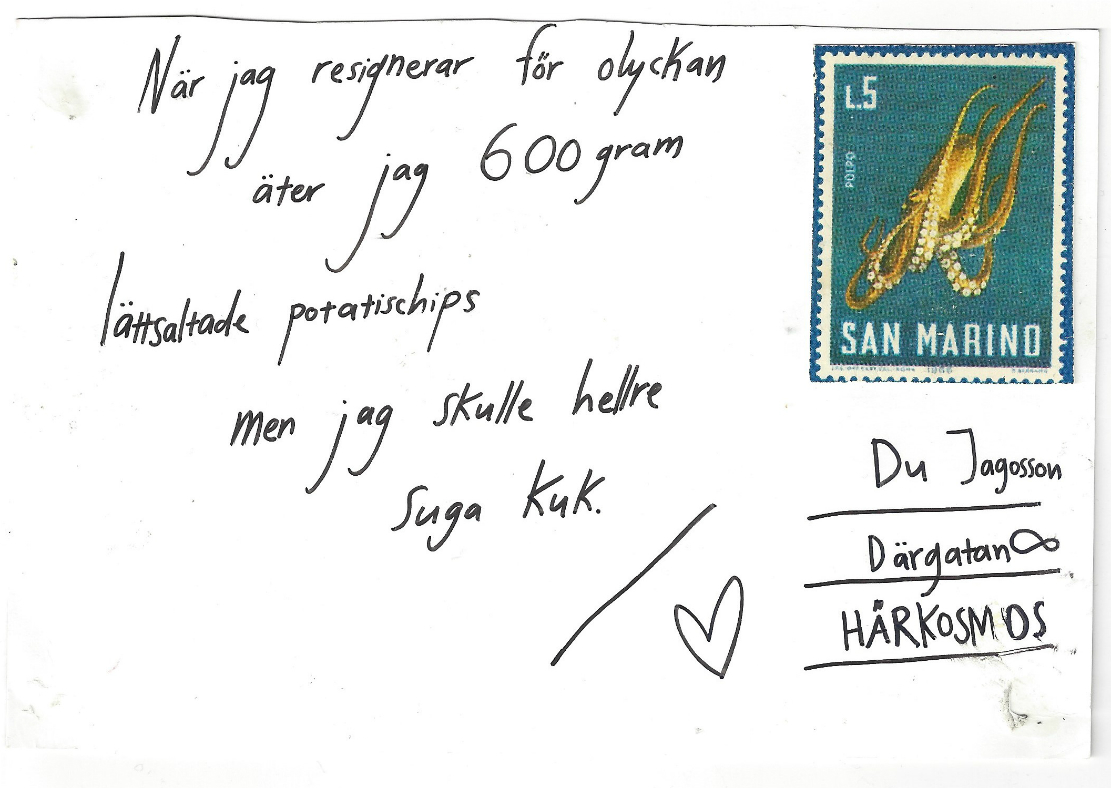 När jag resignerar för olyckan
äter jag 600 gram
lättsaltade potatischips
men jag skulle hellre
suga kuk.
L.5
POLPO
SAN MARINO
1966
Du Jagosson
Därgatan ∞
HÄRKOSMOS